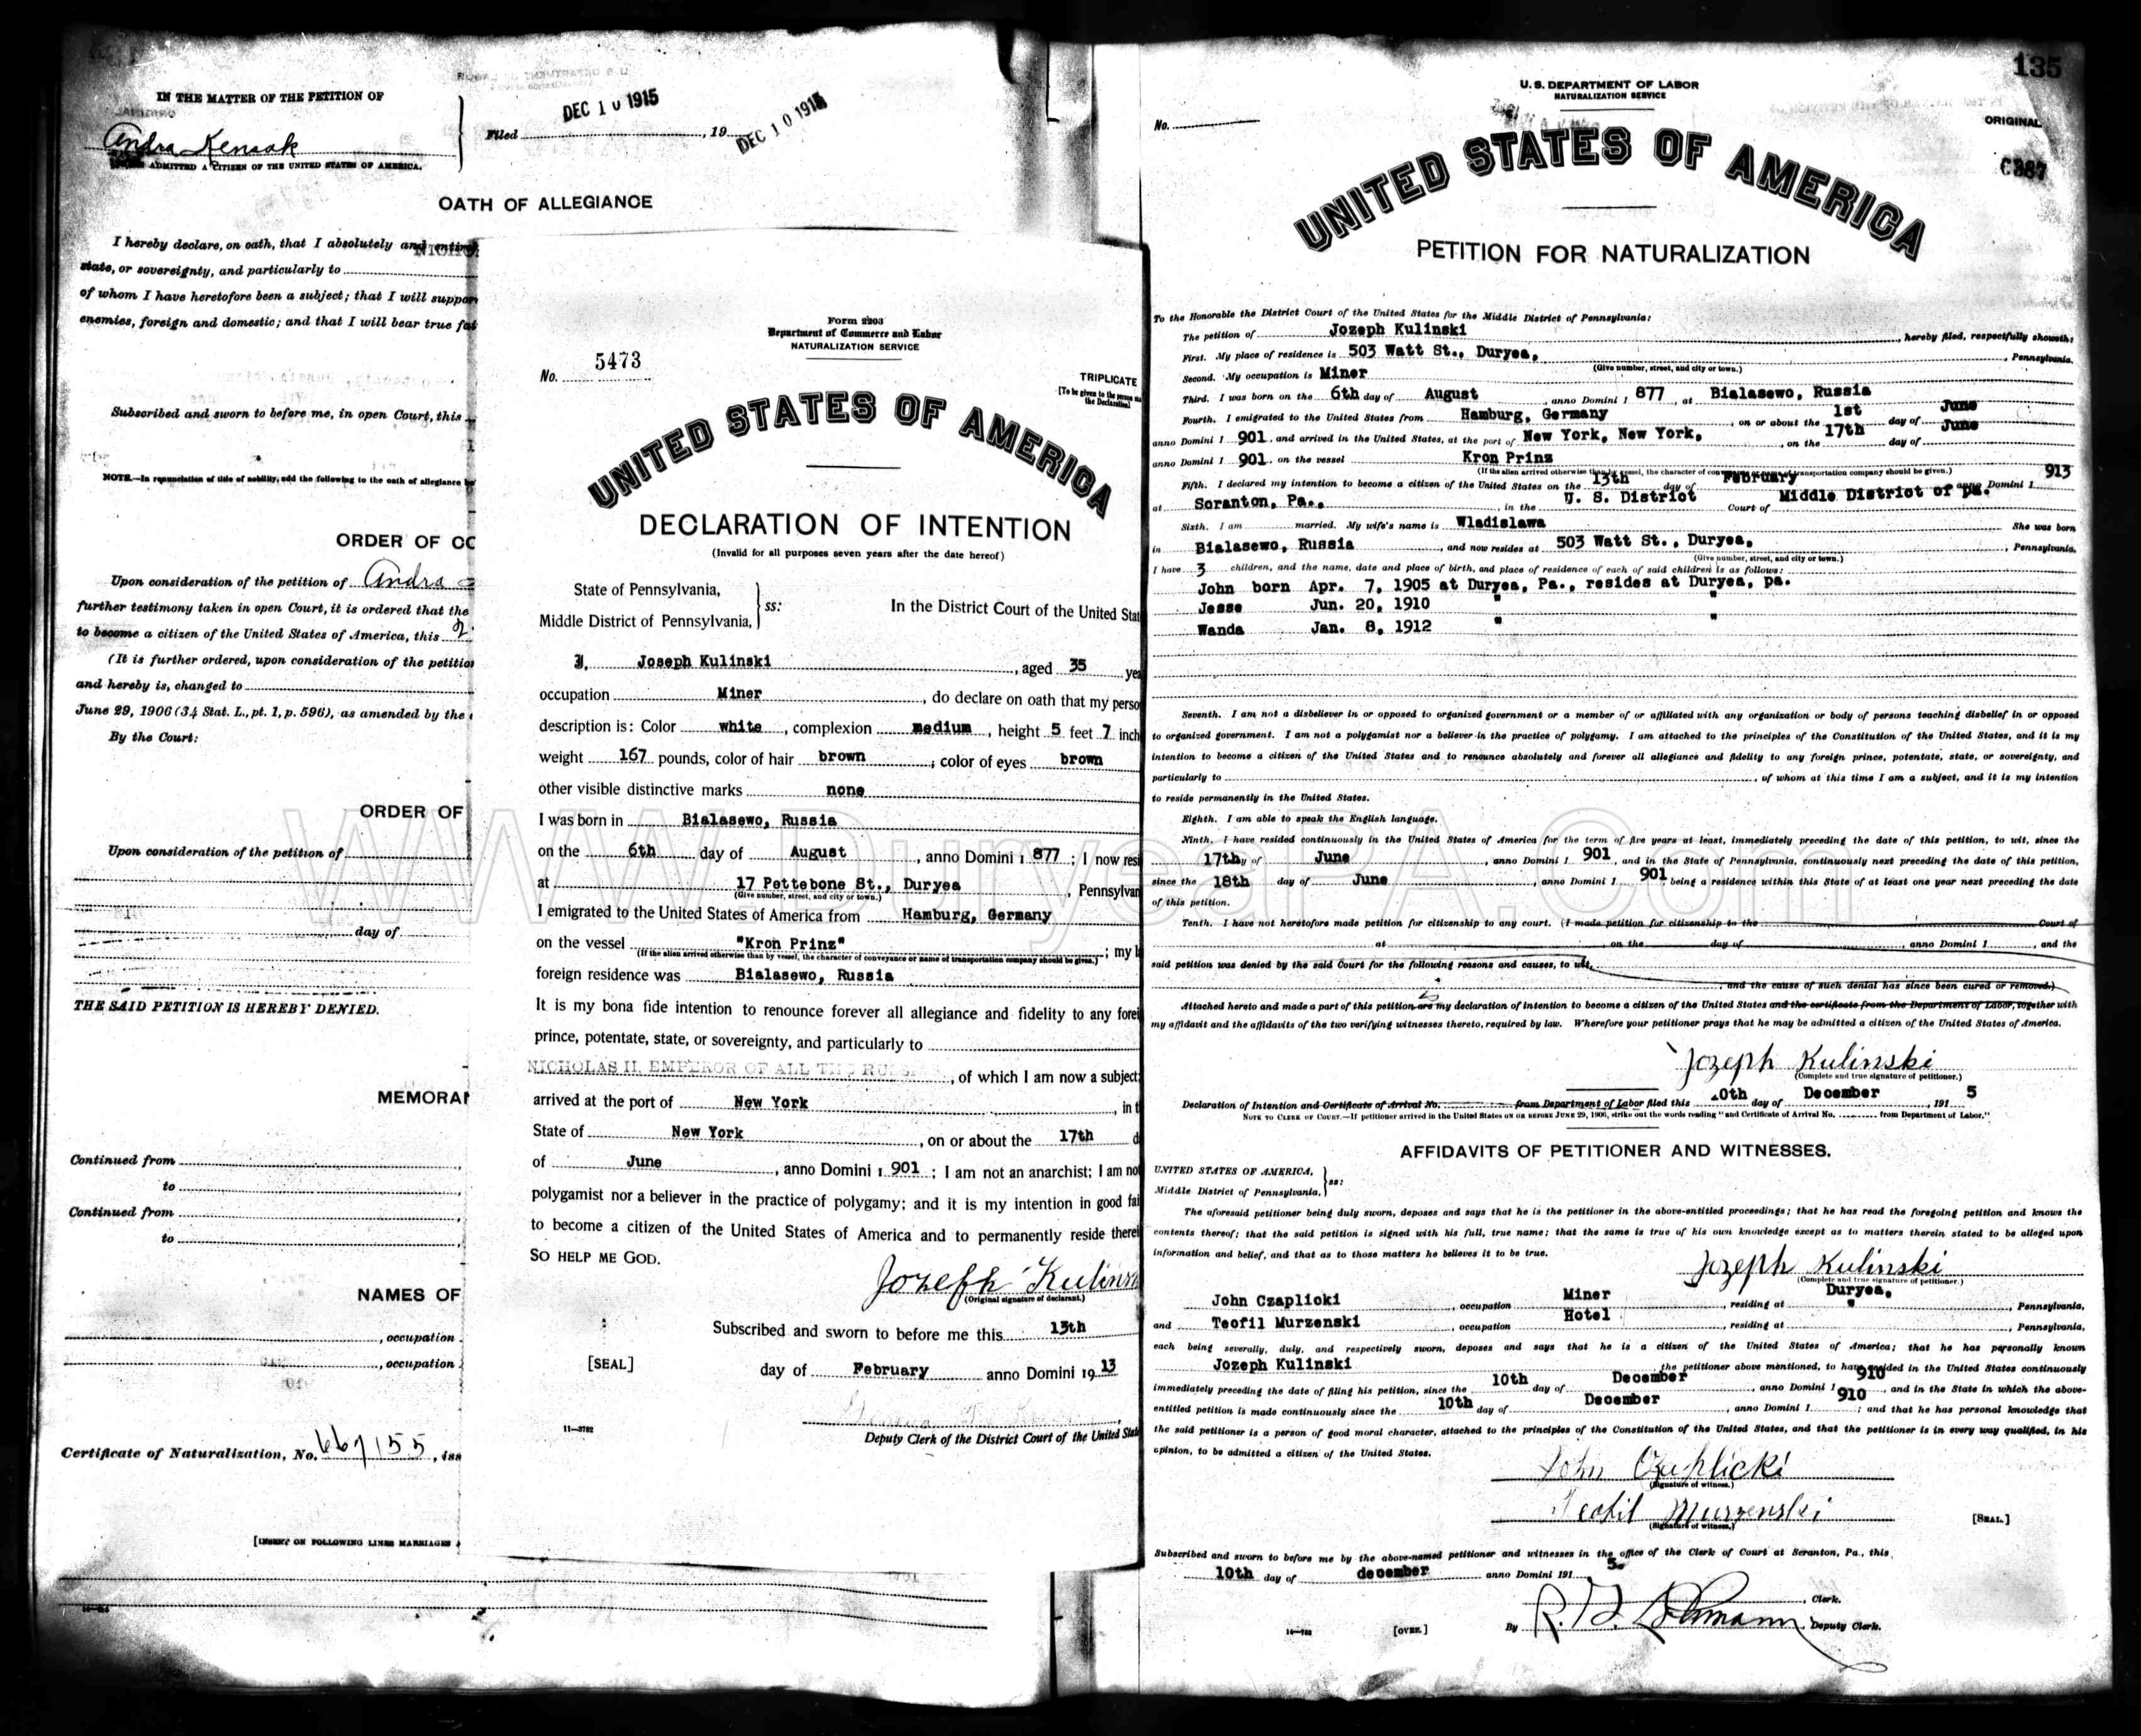 IN THE MATTER OF THE PETITION OF
Andra Kensak
ADMITTED A CITIZEN OF THE UNITED STATES OF AMERICA.
Filed DEC 10 1915, 19
DEC 10 1915
OATH OF ALLEGIANCE
I hereby declare, on oath, that I absolutely and entire
NICHO
state, or sovereignty, and particularly to
of whom I have heretofore been a subject; that I will suppor
enemies, foreign and domestic; and that I will bear true fai
Subscribed and sworn to before me, in open Court, this
NOTE.—In renunciation of title of nobility, add the following to the oath of allegiance
ORDER OF CO
Upon consideration of the petition of Andra
further testimony taken in open Court, it is ordered that the
to become a citizen of the United States of America, this 2
(It is further ordered, upon consideration of the petition
and hereby is, changed to
June 29, 1906 (34 Stat. L., pt. 1, p. 596), as amended by the
By the Court:
ORDER OF
Upon consideration of the petition of
day of
THE SAID PETITION IS HEREBY DENIED.
MEMORAN
Continued from
to
Continued from
to
NAMES OF
, occupation
, occupation
Certificate of Naturalization, No. 667155, iss
[INSERT ON FOLLOWING LINES MARRIAGES
Form 2203
Department of Commerce and Labor
NATURALIZATION SERVICE
No. 5473
TRIPLICATE
[To be given to the person
the Declaration]
UNITED STATES OF AMERICA
DECLARATION OF INTENTION
(Invalid for all purposes seven years after the date hereof)
State of Pennsylvania,
Middle District of Pennsylvania, ss: In the District Court of the United Stat
I, Joseph Kulinski, aged 35 yea
occupation Miner, do declare on oath that my perso
description is: Color white, complexion medium, height 5 feet 7 inch
weight 167 pounds, color of hair brown; color of eyes brown
other visible distinctive marks none
I was born in Bialasewo, Russia
on the 6th day of August, anno Domini 1 877; I now resi
at 17 Pettebone St., Duryea, Pennsylvan
(Give number, street, and city or town.)
I emigrated to the United States of America from Hamburg, Germany
on the vessel "Kron Prinz"; my l
(If the alien arrived otherwise than by vessel, the character of conveyance or name of transportation company should be given.)
foreign residence was Bialasewo, Russia
It is my bona fide intention to renounce forever all allegiance and fidelity to any forei
prince, potentate, state, or sovereignty, and particularly to
NICHOLAS II, EMPEROR OF ALL THE RUSSIAS, of which I am now a subject;
arrived at the port of New York, in t
State of New York, on or about the 17th d
of June, anno Domini 1 901; I am not an anarchist; I am not
polygamist nor a believer in the practice of polygamy; and it is my intention in good fai
to become a citizen of the United States of America and to permanently reside therei
SO HELP ME GOD.
Jozeph Kulinsk
(Original signature of declarant.)
Subscribed and sworn to before me this 13th
[SEAL] day of February anno Domini 19 13
11—3782
Deputy Clerk of the District Court of the United Stat
135
U. S. DEPARTMENT OF LABOR
NATURALIZATION SERVICE
No.
ORIGINAL
C387
UNITED STATES OF AMERICA
PETITION FOR NATURALIZATION
To the Honorable the District Court of the United States for the Middle District of Pennsylvania:
The petition of Jozeph Kulinski, hereby filed, respectfully showeth:
First. My place of residence is 503 Watt St., Duryea,, Pennsylvania.
(Give number, street, and city or town.)
Second. My occupation is Miner
Third. I was born on the 6th day of August, anno Domini 1 877, at Bialasewo, Russia
Fourth. I emigrated to the United States from Hamburg, Germany, on or about the 1st day of June
anno Domini 1 901, and arrived in the United States, at the port of New York, New York,, on the 17th day of June
anno Domini 1 901, on the vessel Kron Prinz
(If the alien arrived otherwise than by vessel, the character of conveyance or name of transportation company should be given.)
Fifth. I declared my intention to become a citizen of the United States on the 13th day of February anno Domini 1 913
at Soranton, Pa.,, in the U. S. District Court of Middle District of pa.
Sixth. I am married. My wife's name is Wladislawa She was born
in Bialasewo, Russia, and now resides at 503 Watt St., Duryea,, Pennsylvania.
(Give number, street, and city or town.)
I have 3 children, and the name, date and place of birth, and place of residence of each of said children is as follows:
John born Apr. 7, 1905 at Duryea, Pa., resides at Duryea, pa.
Jesse Jun. 20, 1910 " "
Wanda Jan. 8, 1912 " "
Seventh. I am not a disbeliever in or opposed to organized government or a member of or affiliated with any organization or body of persons teaching disbelief in or opposed
to organized government. I am not a polygamist nor a believer in the practice of polygamy. I am attached to the principles of the Constitution of the United States, and it is my
intention to become a citizen of the United States and to renounce absolutely and forever all allegiance and fidelity to any foreign prince, potentate, state, or sovereignty, and
particularly to, of whom at this time I am a subject, and it is my intention
to reside permanently in the United States.
Eighth. I am able to speak the English language.
Ninth. I have resided continuously in the United States of America for the term of five years at least, immediately preceding the date of this petition, to wit, since the
17th day of June, anno Domini 1 901, and in the State of Pennsylvania, continuously next preceding the date of this petition,
since the 18th day of June, anno Domini 1 901 being a residence within this State of at least one year next preceding the date
of this petition.
Tenth. I have not heretofore made petition for citizenship to any court. (I made petition for citizenship to the Court of
at on the day of, anno Domini 1, and the
said petition was denied by the said Court for the following reasons and causes, to wit,
, and the cause of such denial has since been cured or removed.)
Attached hereto and made a part of this petition are is my declaration of intention to become a citizen of the United States and the certificate from the Department of Labor, together with
my affidavit and the affidavits of the two verifying witnesses thereto, required by law. Wherefore your petitioner prays that he may be admitted a citizen of the United States of America.
Jozeph Kulinski
(Complete and true signature of petitioner.)
Declaration of Intention and Certificate of Arrival No. from Department of Labor filed this 10th day of December, 191 5
NOTE TO CLERK OF COURT.—If petitioner arrived in the United States ON OR BEFORE JUNE 29, 1906, strike out the words reading "and Certificate of Arrival No. from Department of Labor."
AFFIDAVITS OF PETITIONER AND WITNESSES.
UNITED STATES OF AMERICA,
Middle District of Pennsylvania, ss:
The aforesaid petitioner being duly sworn, deposes and says that he is the petitioner in the above-entitled proceedings; that he has read the foregoing petition and knows the
contents thereof; that the said petition is signed with his full, true name; that the same is true of his own knowledge except as to matters therein stated to be alleged upon
information and belief, and that as to those matters he believes it to be true.
Jozeph Kulinski
(Complete and true signature of petitioner.)
John Czaplioki, occupation Miner, residing at Duryea,, Pennsylvania,
and Teofil Murzenski, occupation Hotel, residing at ", Pennsylvania,
each being severally, duly, and respectively sworn, deposes and says that he is a citizen of the United States of America; that he has personally known
Jozeph Kulinski, the petitioner above mentioned, to have resided in the United States continuously
immediately preceding the date of filing his petition, since the 10th day of December, anno Domini 1 910, and in the State in which the above-
entitled petition is made continuously since the 10th day of December, anno Domini 1 910; and that he has personal knowledge that
the said petitioner is a person of good moral character, attached to the principles of the Constitution of the United States, and that the petitioner is in every way qualified, in his
opinion, to be admitted a citizen of the United States.
John Czaplicki
(Signature of witness.)
Teofil Murzenski
(Signature of witness.)
[SEAL.]
Subscribed and sworn to before me by the above-named petitioner and witnesses in the office of the Clerk of Court at Scranton, Pa., this
10th day of december anno Domini 191 5
, Clerk.
14—782 [OVER.] By, Deputy Clerk.
www.DuryeaPA.com